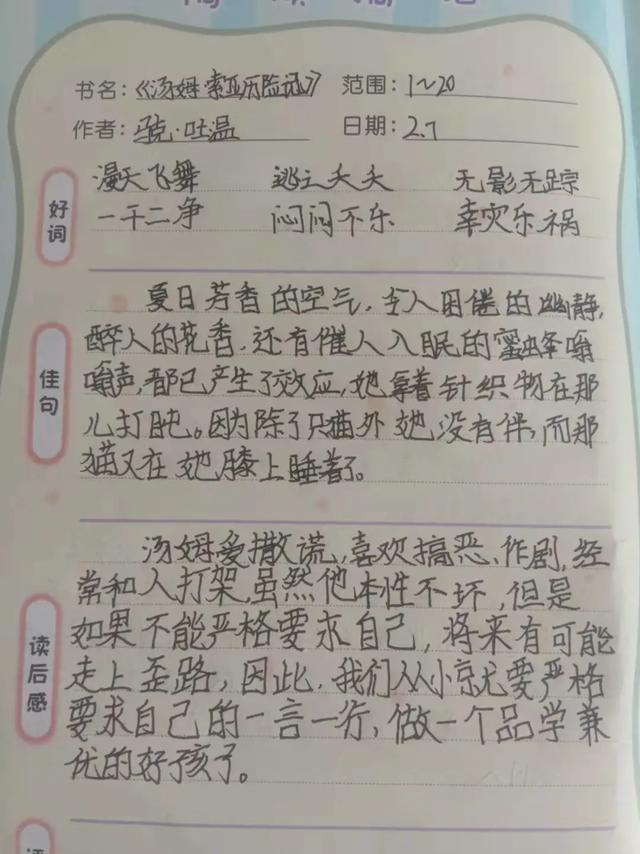 书名:《汤姆·索亚历险记》 范围:1~20
作者:马克·吐温 日期:2.7
好词
漫天飞舞 逃之夭夭 无影无踪
一干二净 闷闷不乐 幸灾乐祸
佳句
夏日芳香的空气,令人困倦的幽静,
醉人的花香,还有催人入眠的蜜蜂嗡
嗡声,都已产生了效应,她拿着针织物在那
儿打盹。因为除了只猫外她没有伴,而那
猫又在她膝上睡着了。
读后感
汤姆爱撒谎,喜欢搞恶、作剧,经
常和人打架,虽然他本性不坏,但是
如果不能严格要求自己,将来有可能
走上歪路,因此,我们从小京尤要严格
要求自己的一言一行,做一个品学兼
优的好孩子。